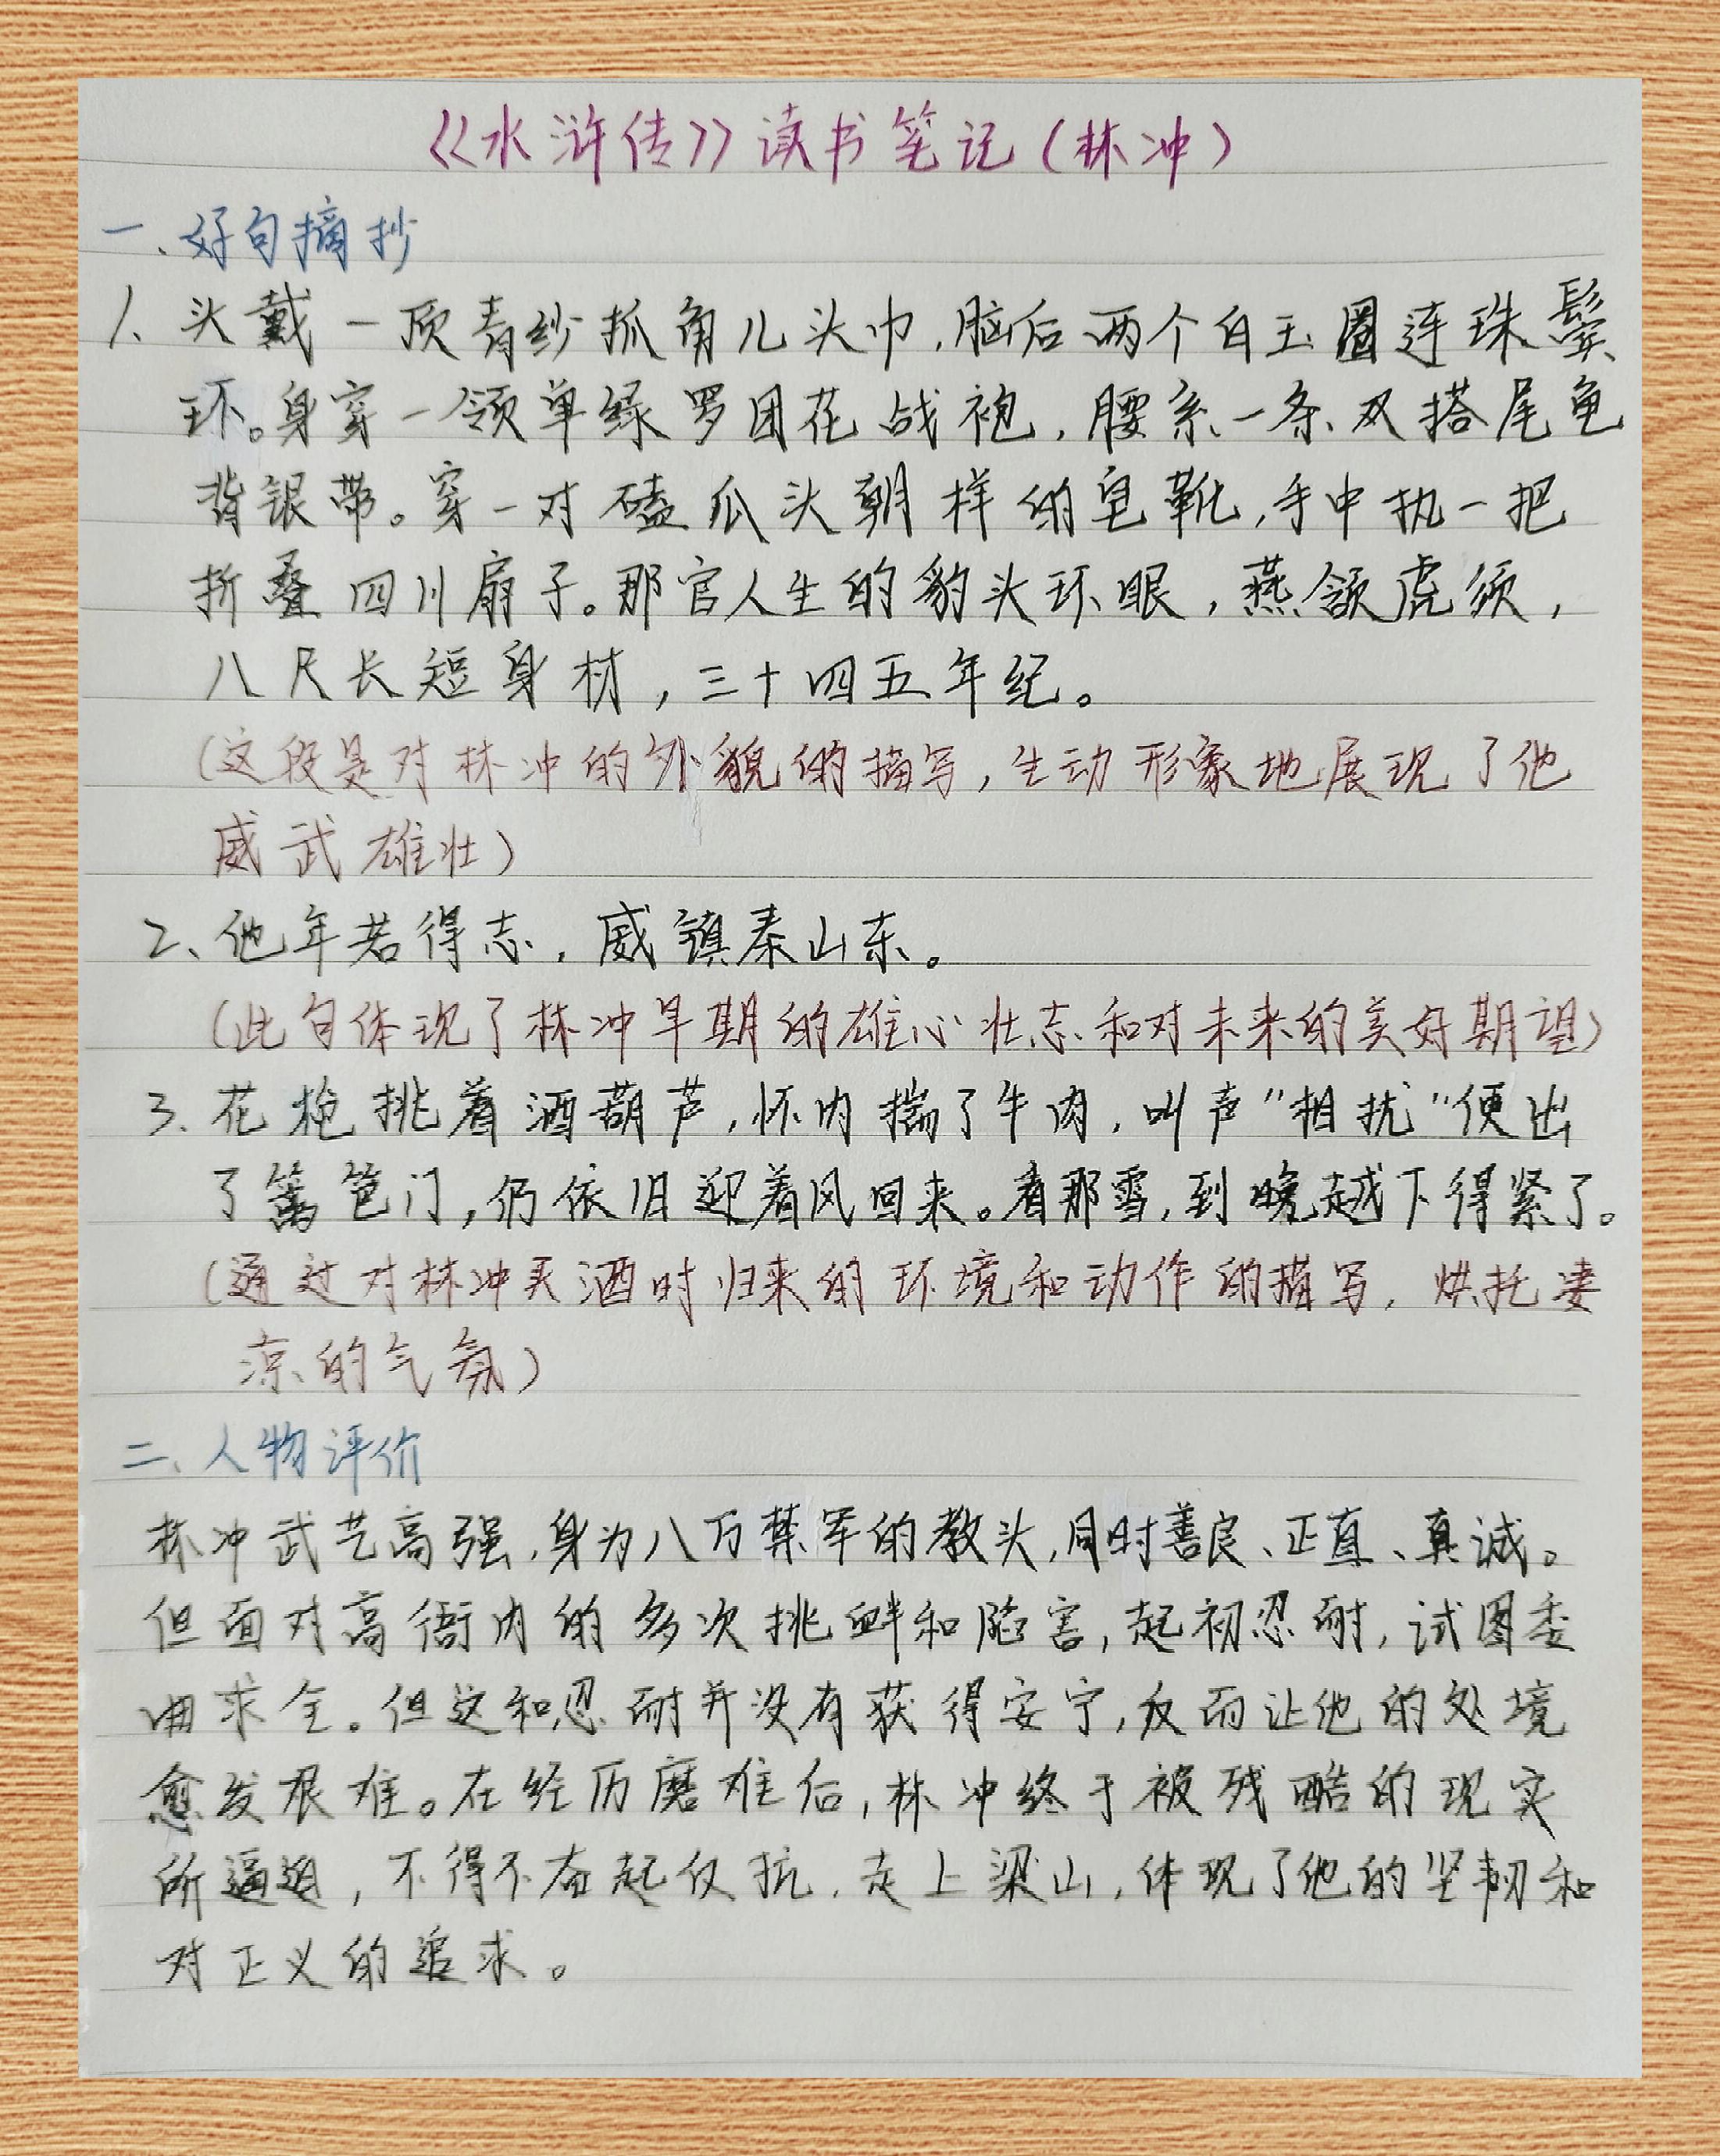 《水浒传》读书笔记(林冲)
一、好句摘抄
1、头戴一顶青纱抓角儿头巾,脑后两个白玉圈连珠鬓
环。身穿一领单绿罗团花战袍,腰系一条双搭尾龟
背银带。穿一对磕瓜头朝样的皂靴,手中执一把
折叠四川扇子。那官人生的豹头环眼,燕颔虎须,
八尺长短身材,三十四五年纪。
(这段是对林冲的外貌的描写,生动形象地展现了他
威武雄壮)
2、他年若得志,威镇泰山东。
(此句体现了林冲早期的雄心壮志和对未来的美好期望)
3、花枪挑着酒葫芦,怀内揣了牛肉,叫声"相扰"便出
了篱笆门,仍依旧迎着风回来。看那雪,到晚越下得紧了。
(通过对林冲买酒时归来的环境和动作的描写,烘托凄
凉的气氛)
二、人物评价
林冲武艺高强,身为八万禁军的教头,同时善良、正直、真诚。
但面对高衙内的多次挑衅和陷害,起初忍耐,试图委
曲求全。但这和忍耐并没有获得安宁,反而让他的处境
愈发艰难。在经历磨难后,林冲终于被残酷的现实
所逼迫,不得不奋起反抗,走上梁山,体现了他的坚韧和
对正义的追求。